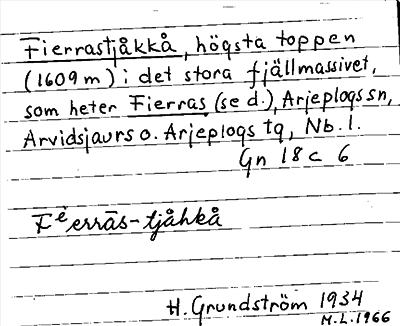 Fierrastjåkkå, högsta toppen
(1609 m) i det stora fjällmassivet,
som heter Fierras (se d.), Arjeplogs sn,
Arvidsjaurs o. Arjeplogs tg, Nb. l.
Gn 18 c 6
Fᵉ̀errās-tjåhkå
H. Grundström 1934
M.L. 1966